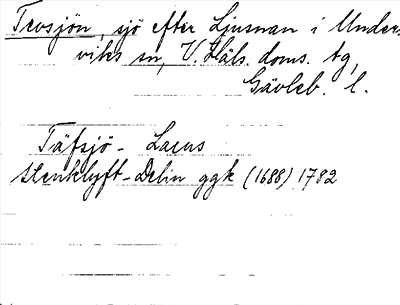 Tevsjön, sjö efter Ljusnan i Under-
viks sn, V. Häls. doms. tg,
Gävleb. l.
Täfsjö - Lacus
Stenklyft - Delin ggk (1688) 1782